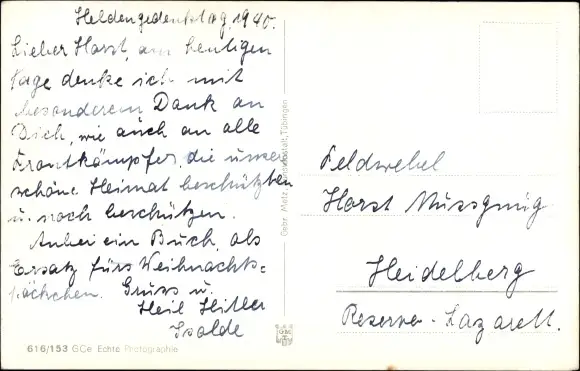 Heldengedenktag, 1940.
Lieber Horst, am heutigen
Tage denke ich mit
besonderem Dank an
Dich, wie auch an alle
Frontkämpfer, die unsere
schöne Heimat beschützten
u. noch beschützen.
Anbei ein Buch, als
Ersatz fürs Weihnachts=
päckchen. Gruss u.
Heil Hitler
Isolde
616/153 GCe Echte Photographie
Gebr. Metz, Tübingen
Feldwebel
Horst Mussgnug
Heidelberg
Reserve-Lazarett.